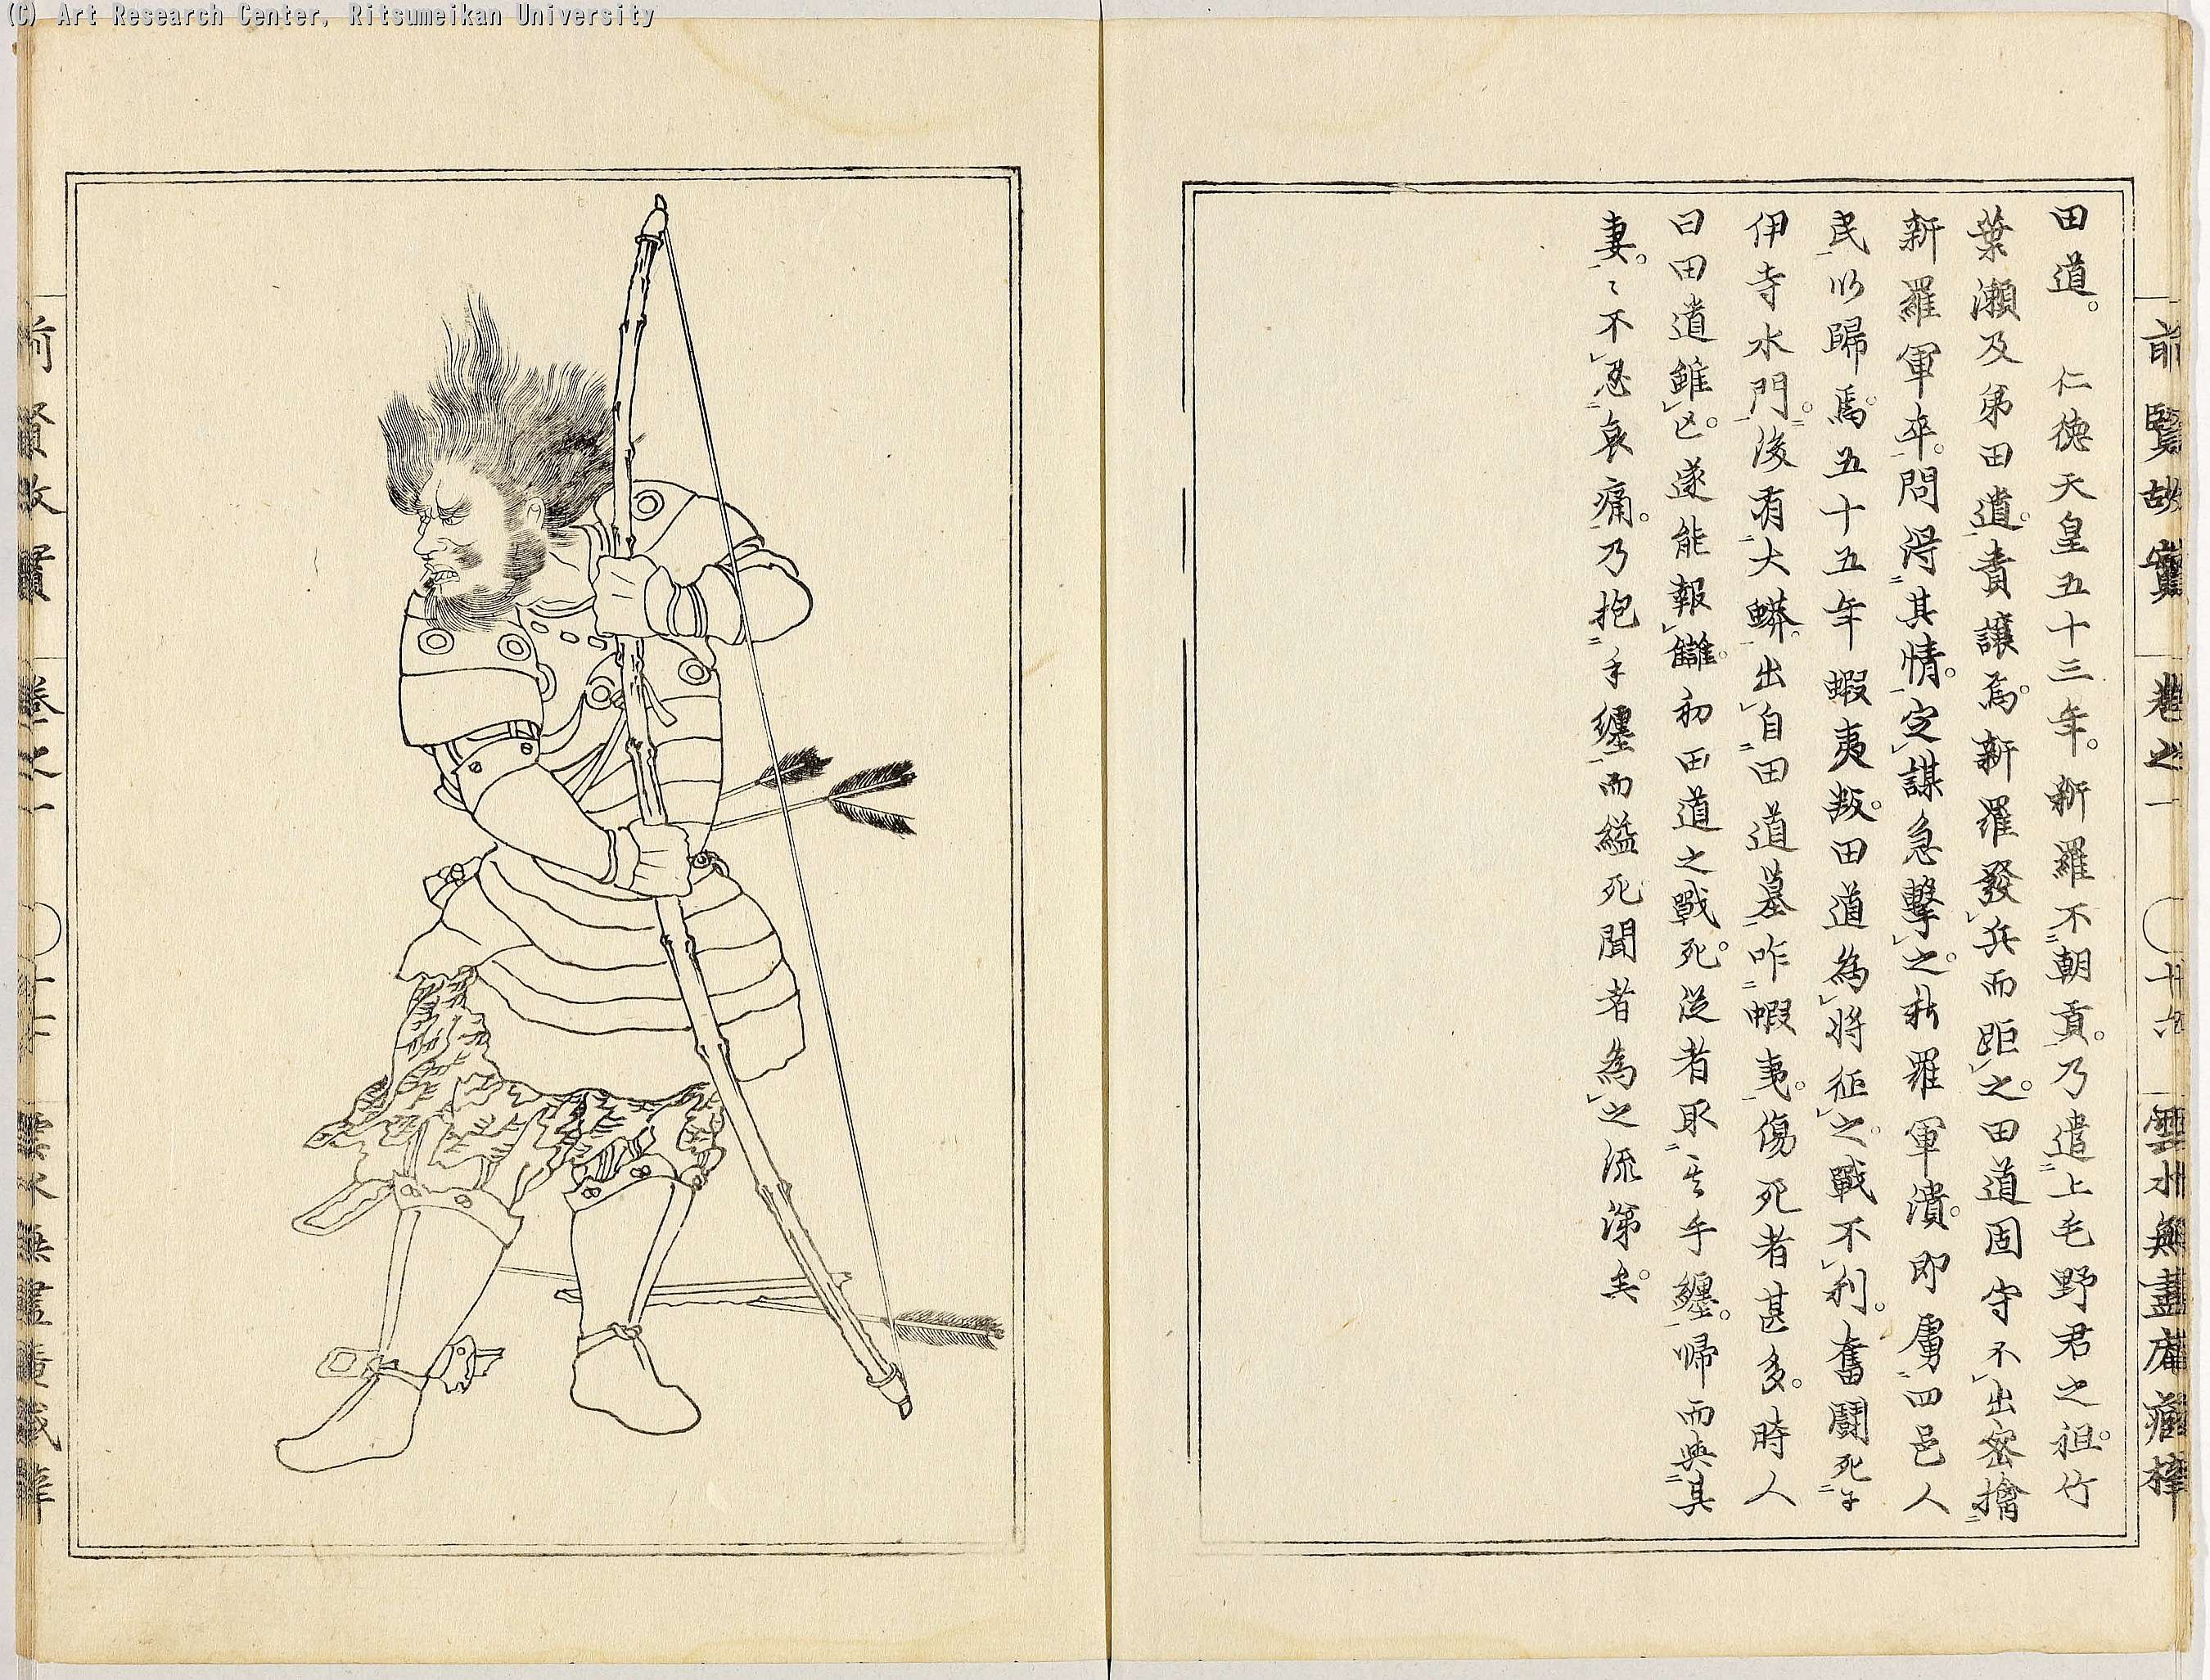 (C) Art Research Center, Ritsumeikan University
前賢故實 巻之一 〇十六 雲水無盡庵蔵梓
田道。 仁徳天皇五十三年。新羅不朝貢。乃遣上毛野君之祖。竹
葉瀬及弟田道。責譲焉。新羅發兵而距之。田道固守不出密擒
新羅軍卒。問得其情。定謀急撃之。新羅軍潰。即虜四邑人
民以歸焉。五十五年蝦夷叛。田道為將征之。戰不利。奮闘死于
伊寺水門。後有大蟒。出自田道墓咋蝦夷。傷死者甚多。時人
曰田道雖亡。遂能報讎。初田道之戰死。従者取其手纏。帰而與其
妻。〻不忍哀痛。乃抱手纏而縊死聞者為之流涕矣。